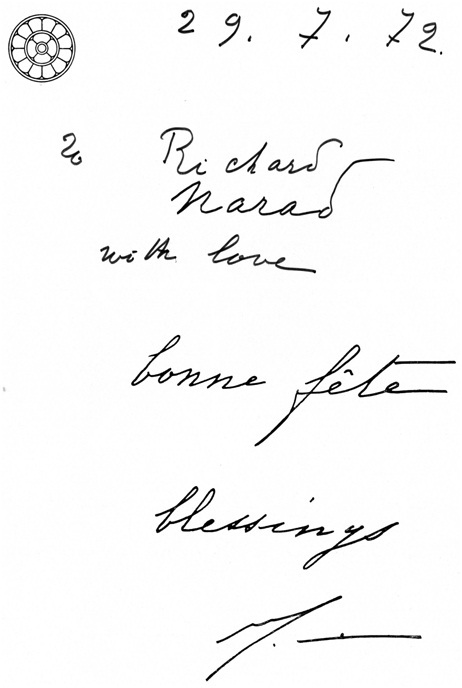 29.7.72.
To Richard
Narad
with love
bonne fête
blessings